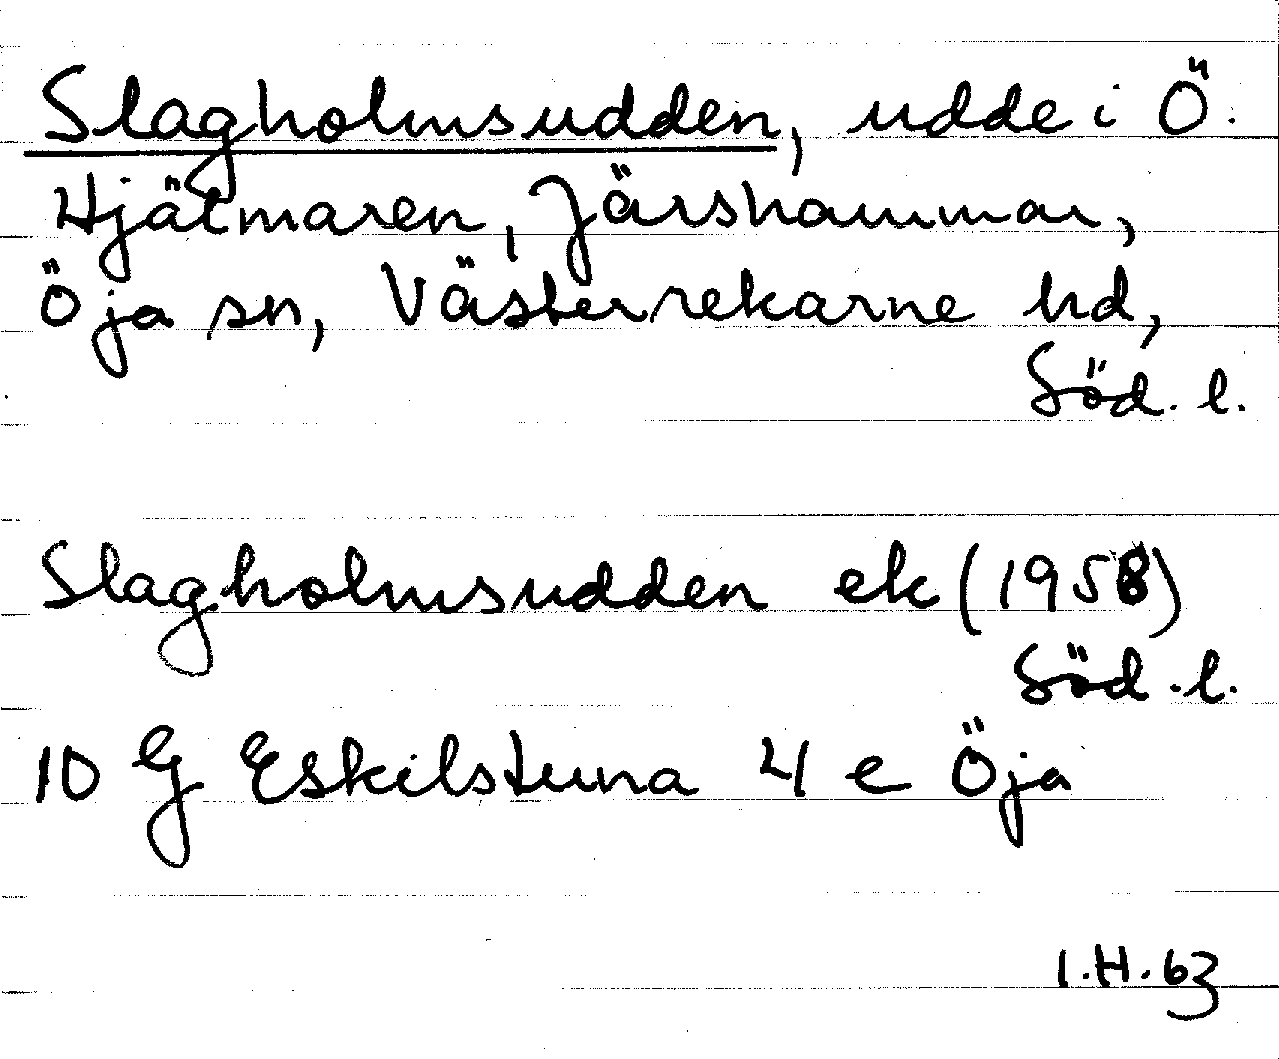 Slagholmsudden, udde i Ö.
Hjälmaren, Järshammar,
Öja sn, Västerrekarne hd,
Söd. l.
Slagholmsudden ek (1958)
Söd. l.
10 G Eskilstuna 4 e Öja
I.H. 63